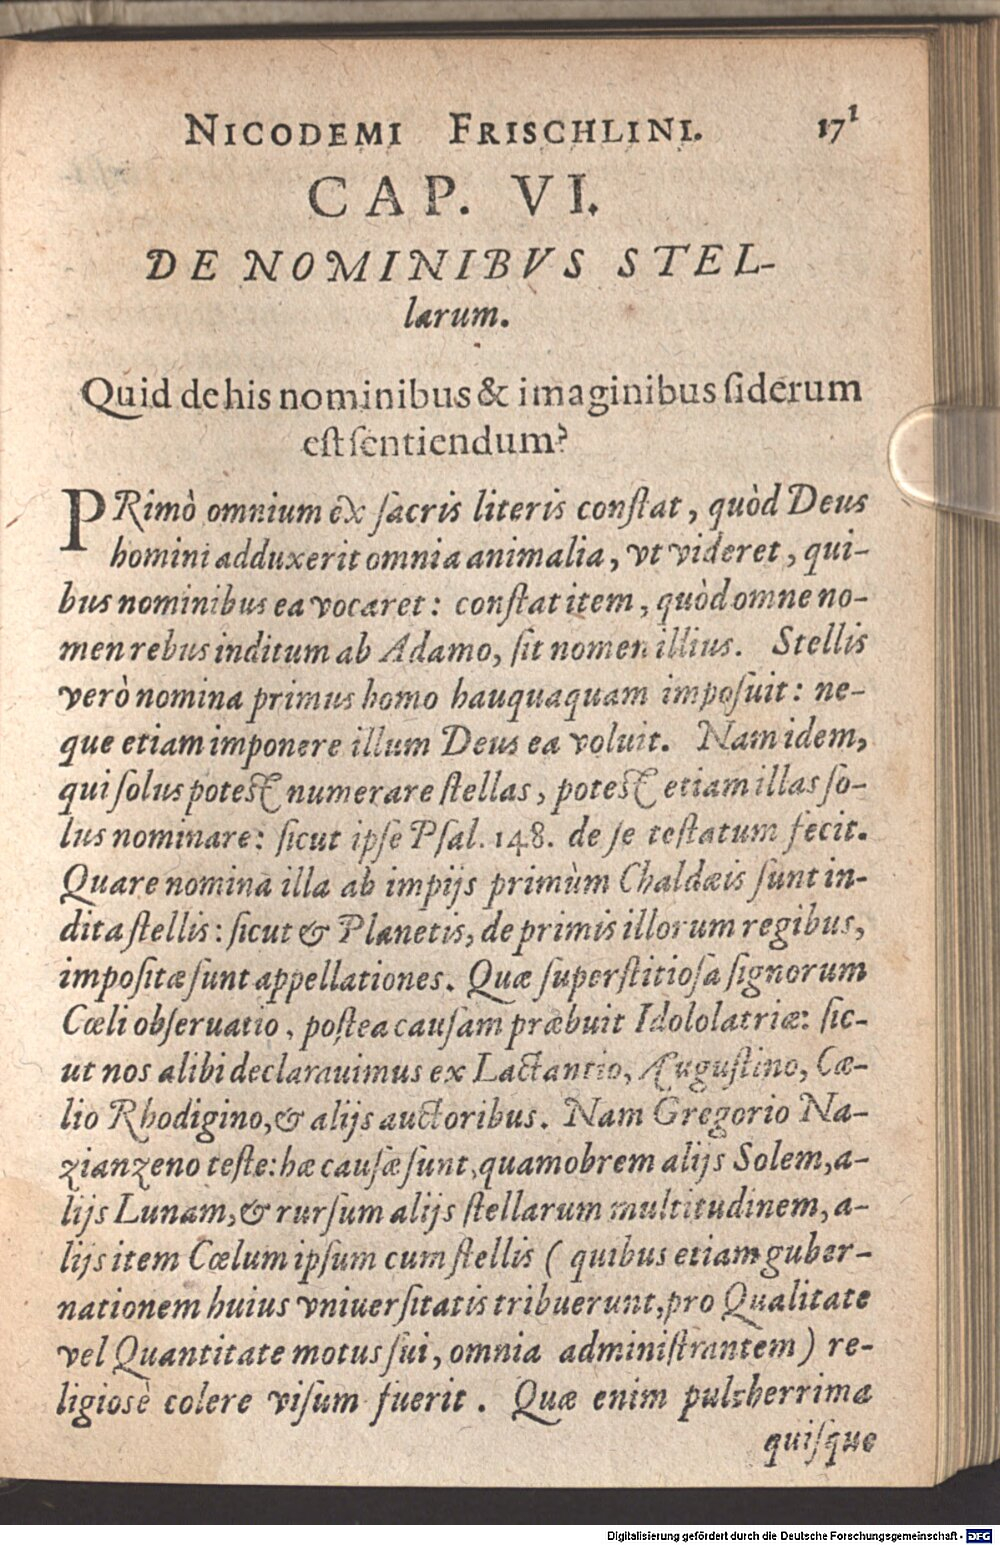 NICODEMI FRISCHLINI. 171
CAP. VI.
DE NOMINIBVS STEL-
larum.
Quid de his nominibus & imaginibus ſiderum
eſt ſentiendum?
PRimò omnium ex ſacris literis conſtat, quòd Deus
homini adduxerit omnia animalia, vt videret, qui-
bus nominibus ea vocaret: conſtat item, quòd omne no-
men rebus inditum ab Adamo, ſit nomen illius. Stellis
verò nomina primus homo hauquaquam impoſuit: ne-
que etiam imponere illum Deus ea voluit. Nam idem,
qui ſolus poteſt numerare ſtellas, poteſt etiam illas ſo-
lus nominare: ſicut ipſe Pſal. 148. de ſe teſtatum fecit.
Quare nomina illa ab impijs primùm Chaldæis ſunt in-
dita ſtellis: ſicut & Planetis, de primis illorum regibus,
impoſitæ ſunt appellationes. Quæ ſuperſtitioſa ſignorum
Cœli obſeruatio, poſtea cauſam præbuit Idololatriæ: ſic-
ut nos alibi declarauimus ex Lactantio, Æuguſtino, Cæ-
lio Rhodigino, & alijs auctoribus. Nam Gregorio Na-
zianzeno teſte: hæ cauſæ ſunt, quamobrem alijs Solem, a-
lijs Lunam, & rurſum alijs ſtellarum multitudinem, a-
lijs item Cœlum ipſum cum ſtellis ( quibus etiam guber-
nationem huius vniuerſitatis tribuerunt, pro Qualitate
vel Quantitate motus ſui, omnia adminiſtrantem ) re-
ligiosè colere viſum fuerit. Quæ enim pulcherrima
quiſque
Digitalisierung gefördert durch die Deutsche Forschungsgemeinschaft - DFG